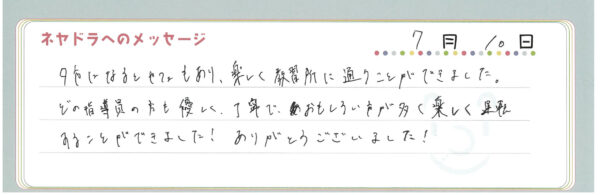 ネヤドラへのメッセージ
7月10日
なることもあり、楽しく教習所に通うことができました。
どの指導員の方も優しく、丁寧で、おもしろい方が多く楽しく運転
することができました！ ありがとうございました！